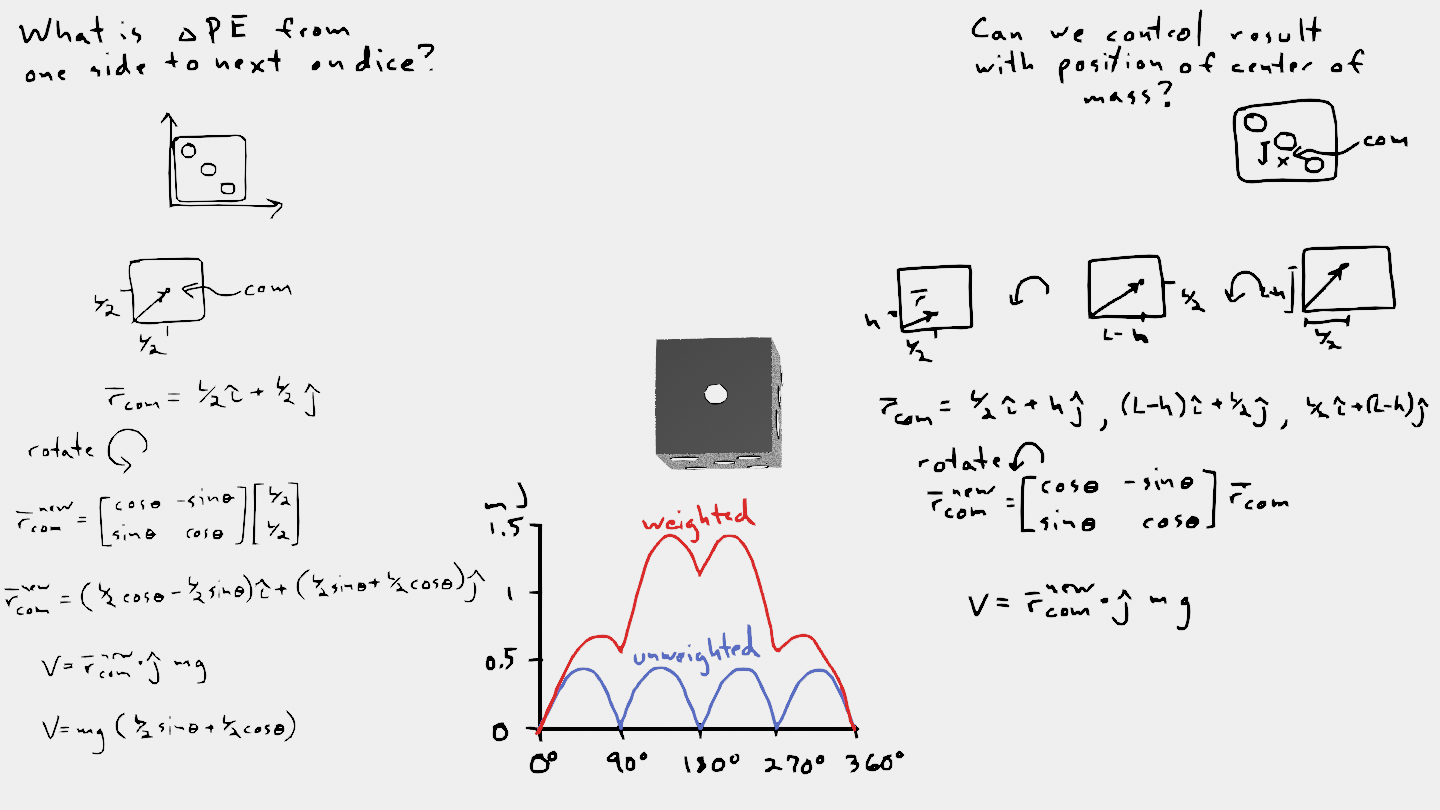 What is ΔPE from
one side to next on dice?
com
L/2
L/2
r̄com = L/2 î + L/2 ĵ
rotate
r̄com^new = [cosθ -sinθ] [L/2]
[sinθ cosθ] [L/2]
r̄com^new = (L/2 cosθ - L/2 sinθ) î + (L/2 sinθ + L/2 cosθ) ĵ
V = r̄com^new · ĵ mg
V = mg (L/2 sinθ + L/2 cosθ)
mJ
1.5
1
0.5
0
weighted
unweighted
0° 90° 180° 270° 360°
Can we control result
with position of center of
mass?
com
r̄
h
L/2
L/2
L-h
L-h
L/2
r̄com = L/2 î + h ĵ , (L-h) î + L/2 ĵ , L/2 î + (L-h) ĵ
rotate
r̄com^new = [cosθ -sinθ] r̄com
[sinθ cosθ]
V = r̄com^new · ĵ mg